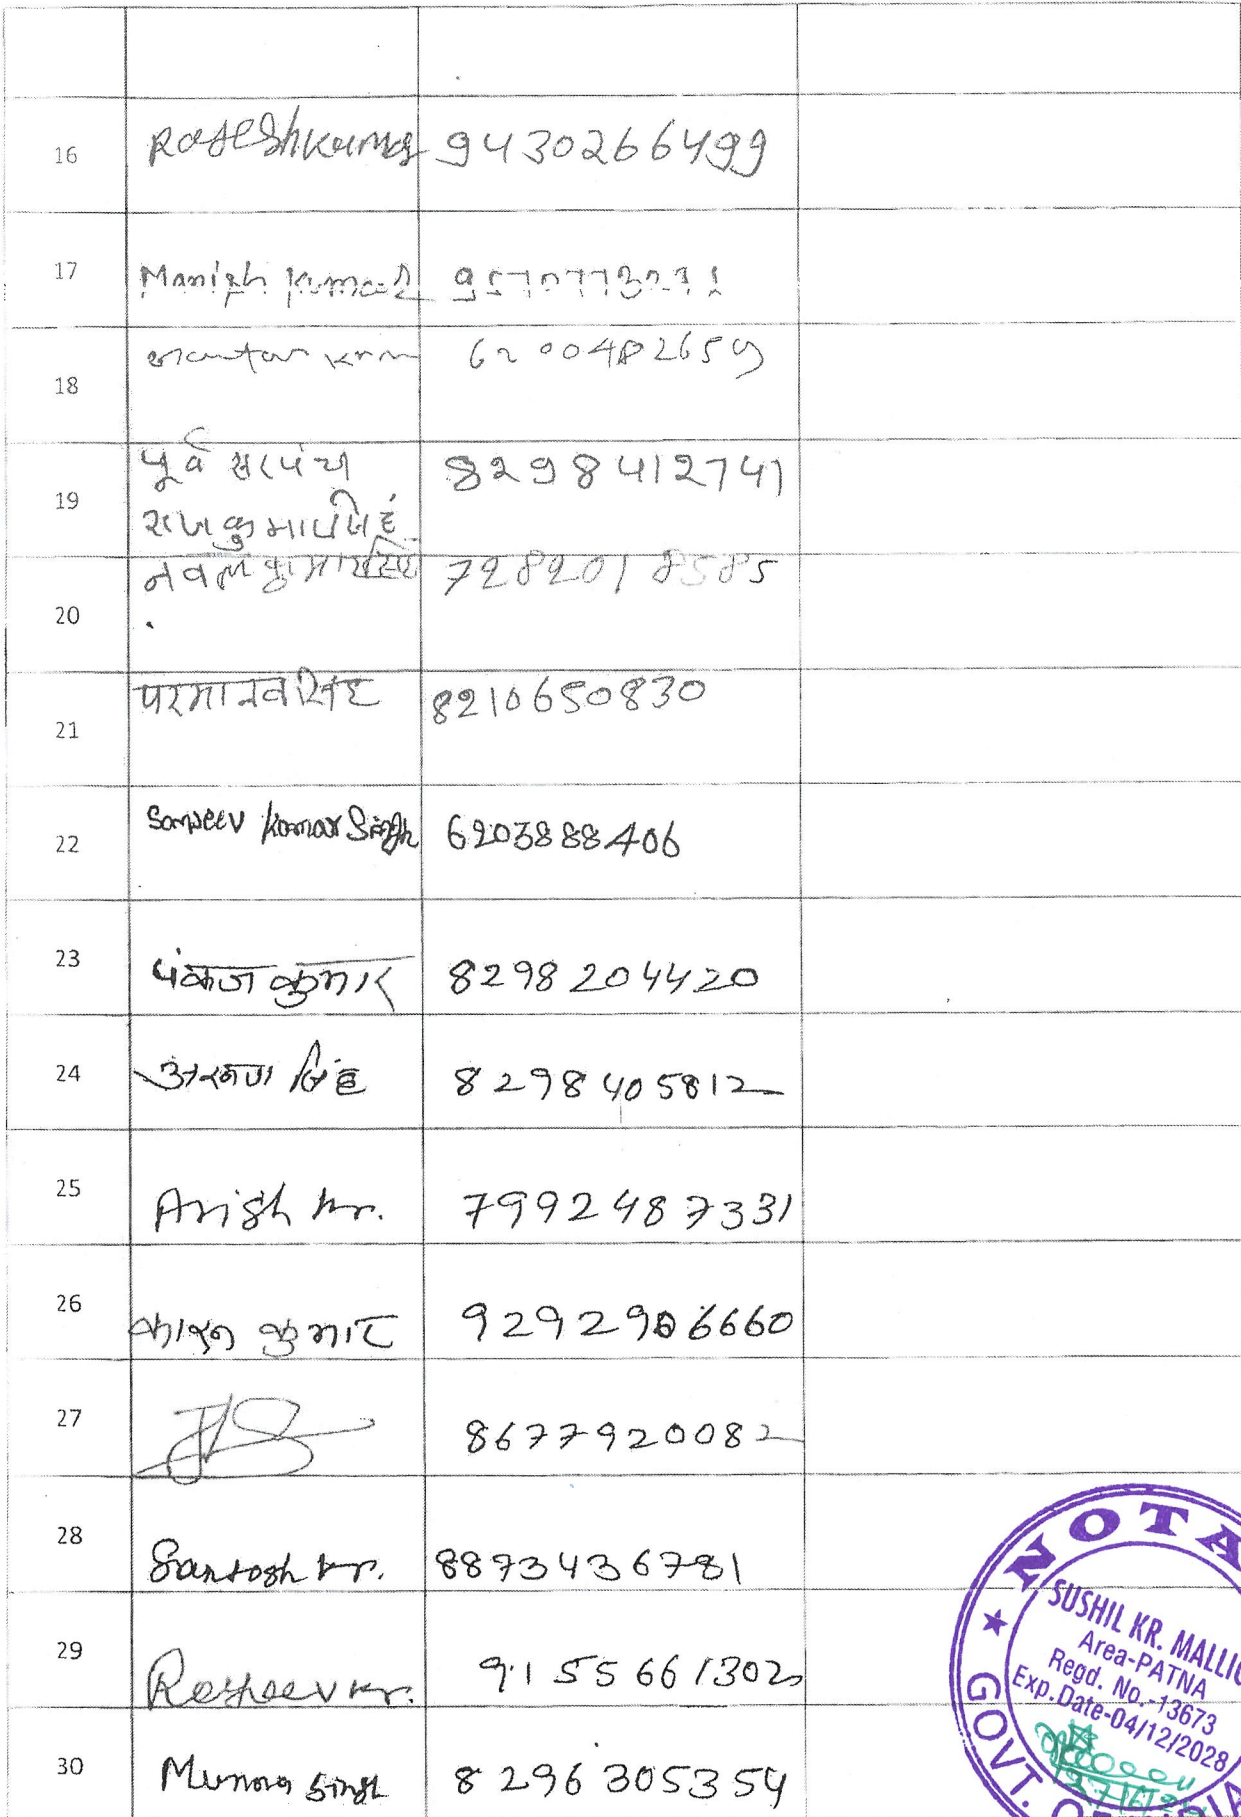 16 Rajesh kumar 9430266499
17 Manish Kumar
18 6200482659
19 पूर्व सरपंच 8298412741
राज कुमार सिंह
नवल कुमार सिंह 7282018585
20
परमानन्द सिंह 8210650830
21
22 Sanjeev Kumar Singh 6203888406
23 पंकज कुमार 8298204420
24 अरुण सिंह 8298405812
25 Anish kr. 7992487331
26 कुमार 9292906660
27 8677920082
28 Santosh kr. 8873436781
29 Rajeev kr. 9155661302
30 Munna Singh 8296305354
NOTA
SUSHIL KR. MALLIC
Area-PATNA
Regd. No.-13673
Exp.Date-04/12/2028
GOVT. OF